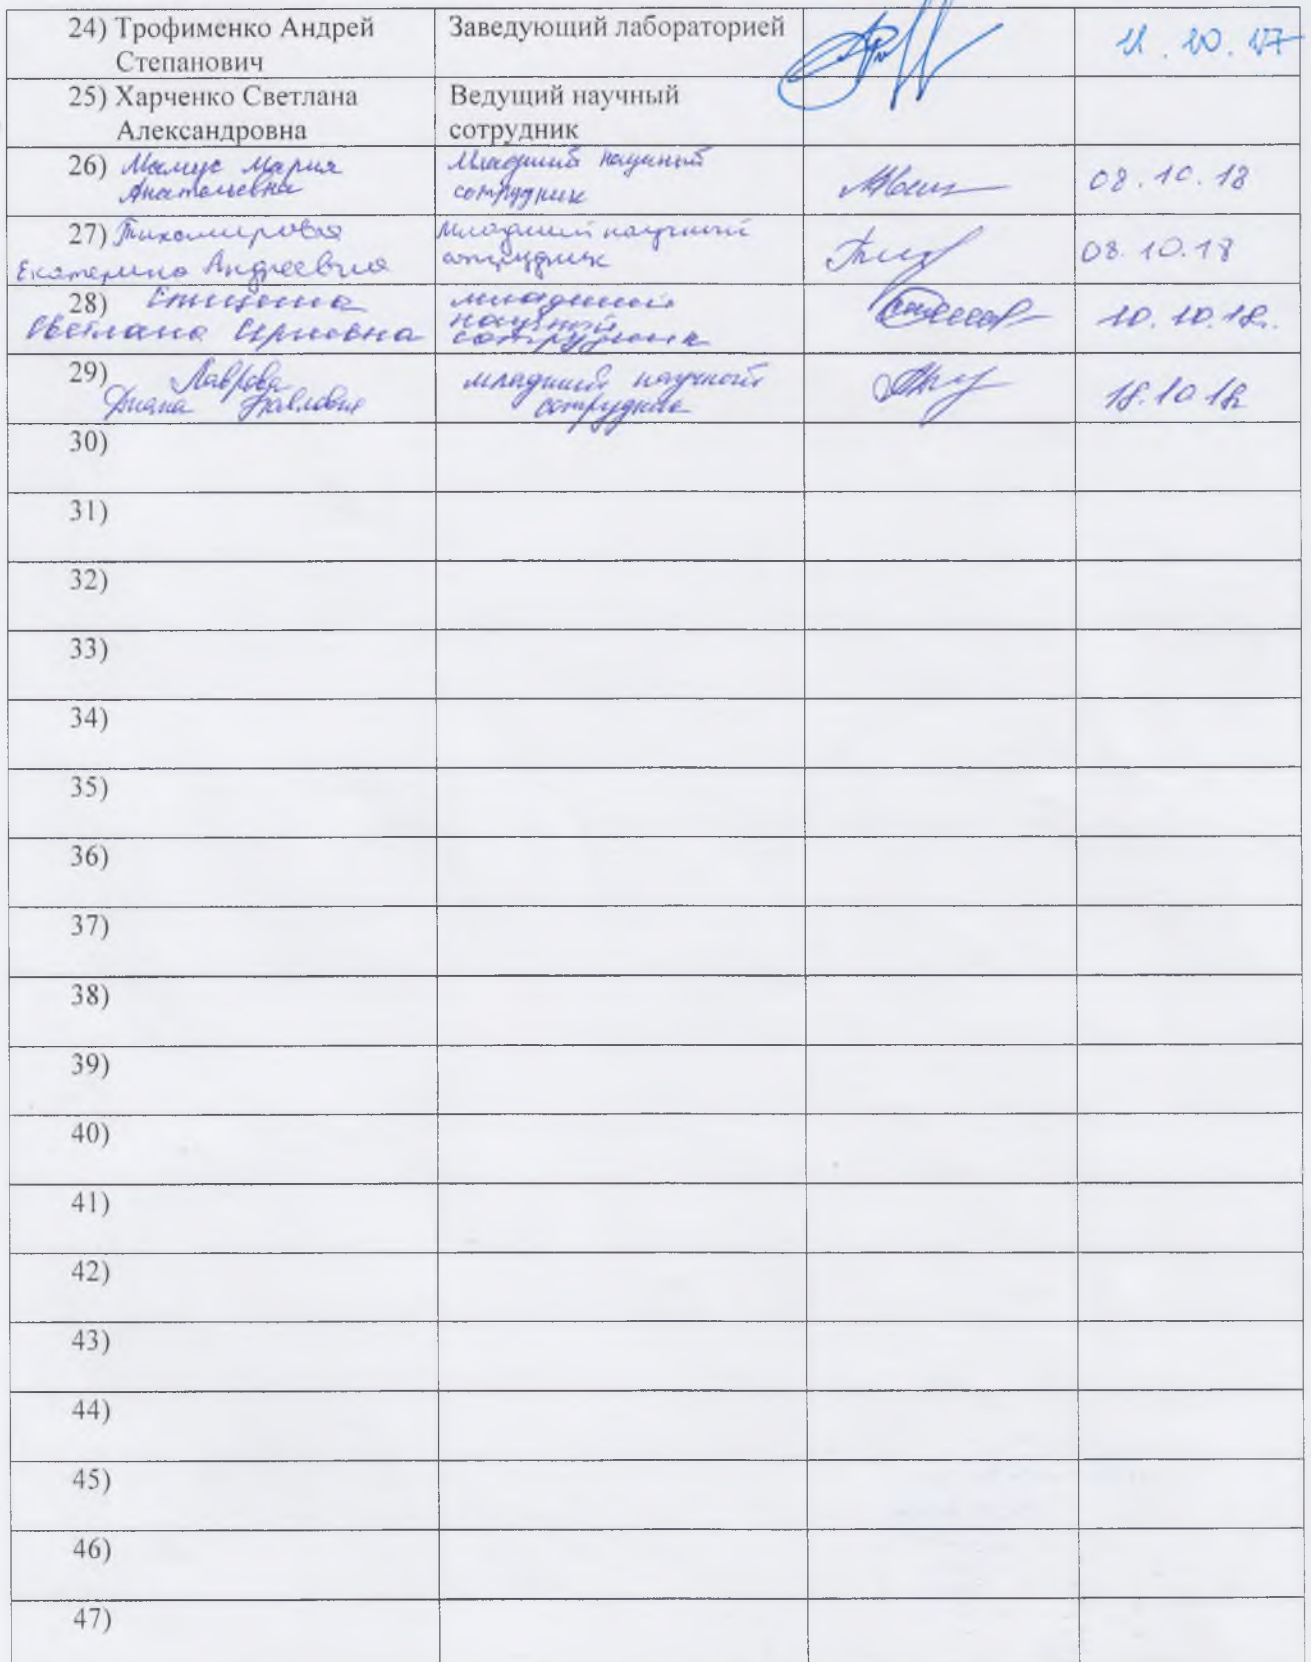 24) Трофименко Андрей
Степанович
Заведующий лабораторией
11.10.17
25) Харченко Светлана
Александровна
Ведущий научный
сотрудник
26) Мария
Анатольевна
Младший научный
сотрудник
08.10.18
27) Тихомирова
Екатерина Андреевна
младший научный
сотрудник
08.10.18
28)
Светлана
младший
научный
сотрудник
10.10.18.
29) Лаврова
Диана Павловна
младший научный
сотрудник
18.10.18
30)
31)
32)
33)
34)
35)
36)
37)
38)
39)
40)
41)
42)
43)
44)
45)
46)
47)